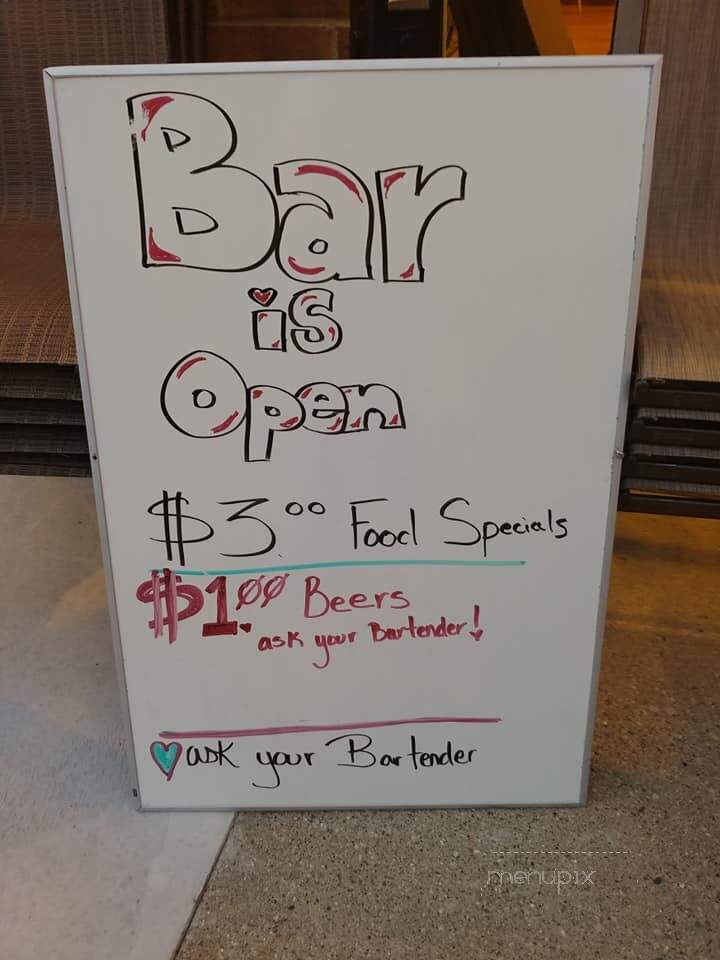 Bar
is
Open
$3.00 Food Specials
$1.00 Beers
ask your Bartender!
ask your Bartender
menupix